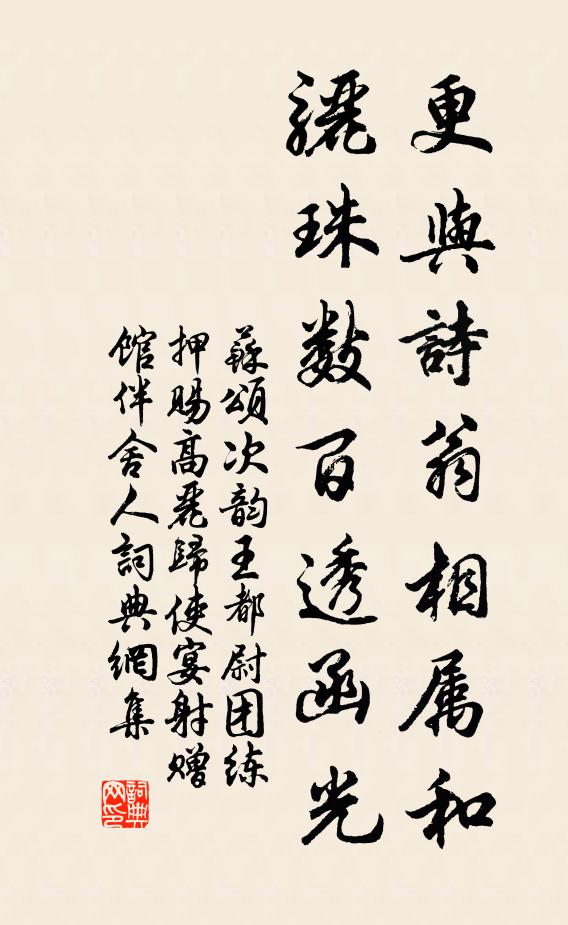 更與詩翁相属和
骊珠数百透函光
蘇頌次韵王都尉团练
押賜高麗歸使宴射赠
馆伴舍人詞典網集
詞典网印